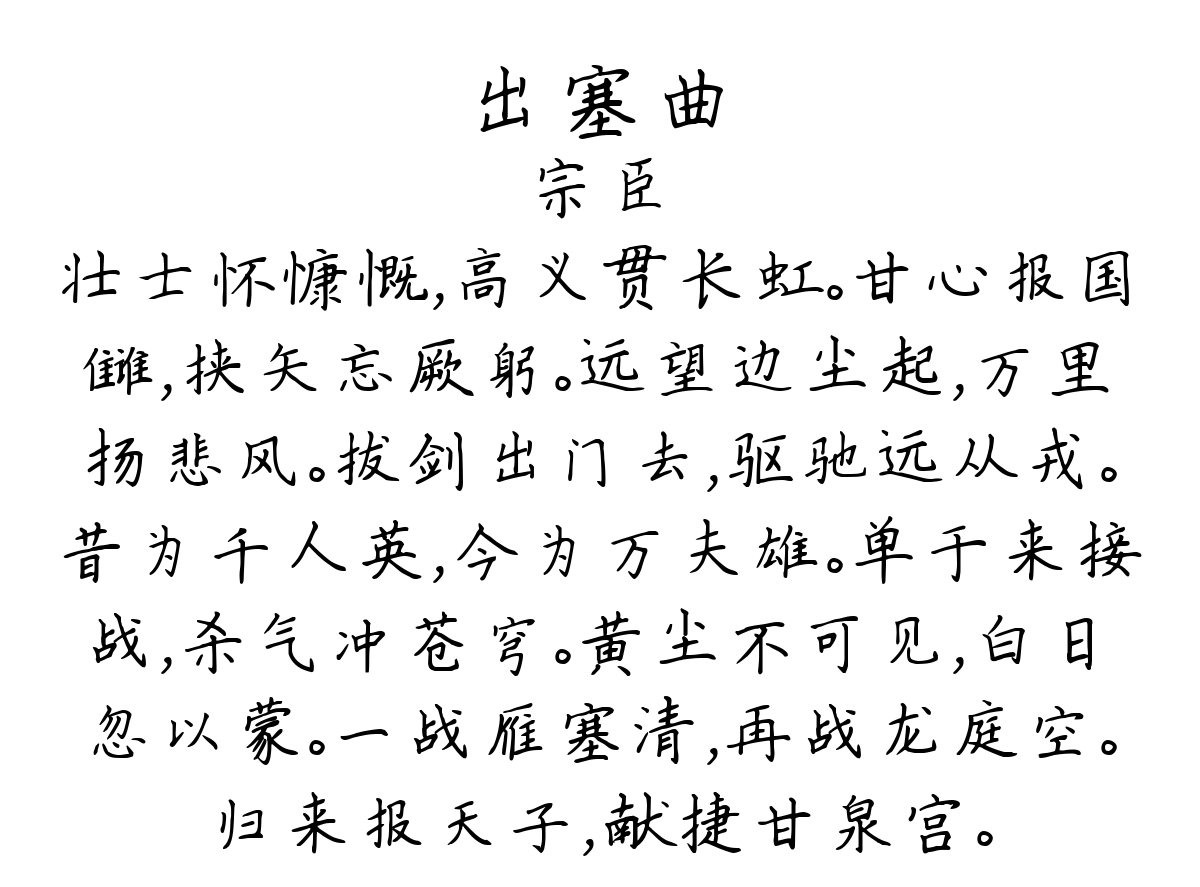 出塞曲
宗臣
壮士怀慷慨,高义贯长虹。甘心报国
雠,挟矢忘厥躬。远望边尘起,万里
扬悲风。拔剑出门去,驱驰远从戎。
昔为千人英,今为万夫雄。单于来接
战,杀气冲苍穹。黄尘不可见,白日
忽以蒙。一战雁塞清,再战龙庭空。
归来报天子,献捷甘泉宫。